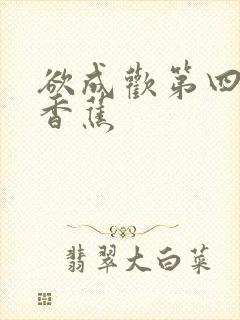 欲成歡第四
香蕉
翡翠大白菜